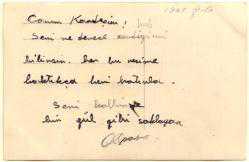 Canım Kardeşim,
Seni ne derece sevdiğimi
bilinmez. her bu resime
baktıkça beni hatırla.
Seni kalbimde
bir gül gibi saklayan